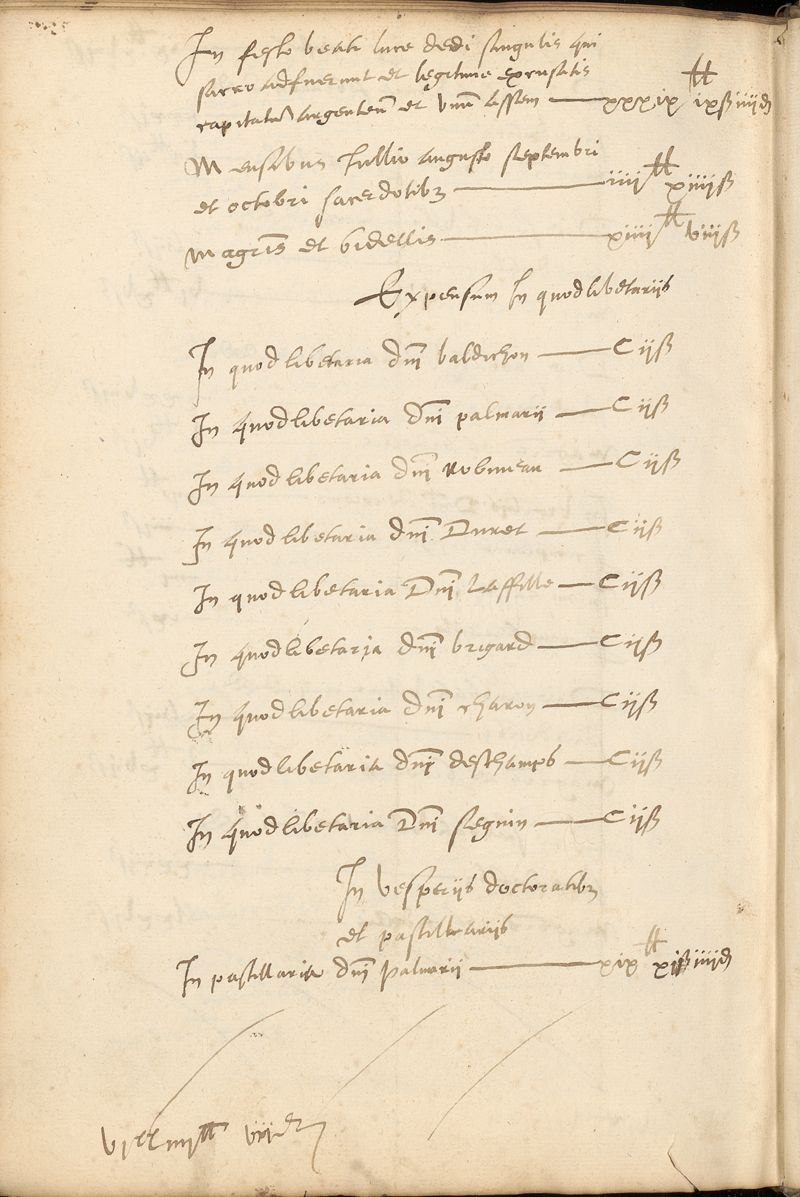 In festo beati luce dedi singulis qui
sacro adfuerunt et legitime excusatis
capitatū argenteū et unū assem — xxxix ℔ ixß iiijd
Mensibus Iullio augusto septembri
et octobri sacerdotibꝫ — iiij ℔ xiiijß
magr̄is et bidellis — xiiij ℔ viijß
Expensum In quodlibetariis
In quodlibetaria dn̄j baldichon — C ijß
In quodlibetaria dn̄j palmarij — C ijß
In quodlibetaria dn̄j Robineau — C ijß
In quodlibetaria dn̄j Duret — C ijß
In quodlibetaria Dn̄j Laffille — C ijß
In quodlibetaria dn̄j brigard — C ijß
In quodlibetaria dn̄j charon — C ijß
In quodlibetaria dn̄j deschamps — C ijß
In quodlibetaria Dn̄j seguin — C ijß
In vesperijs doctoratibꝫ
et pastillarijs
In pastillaria dn̄j palmarij — xix ℔ xjß iiijd